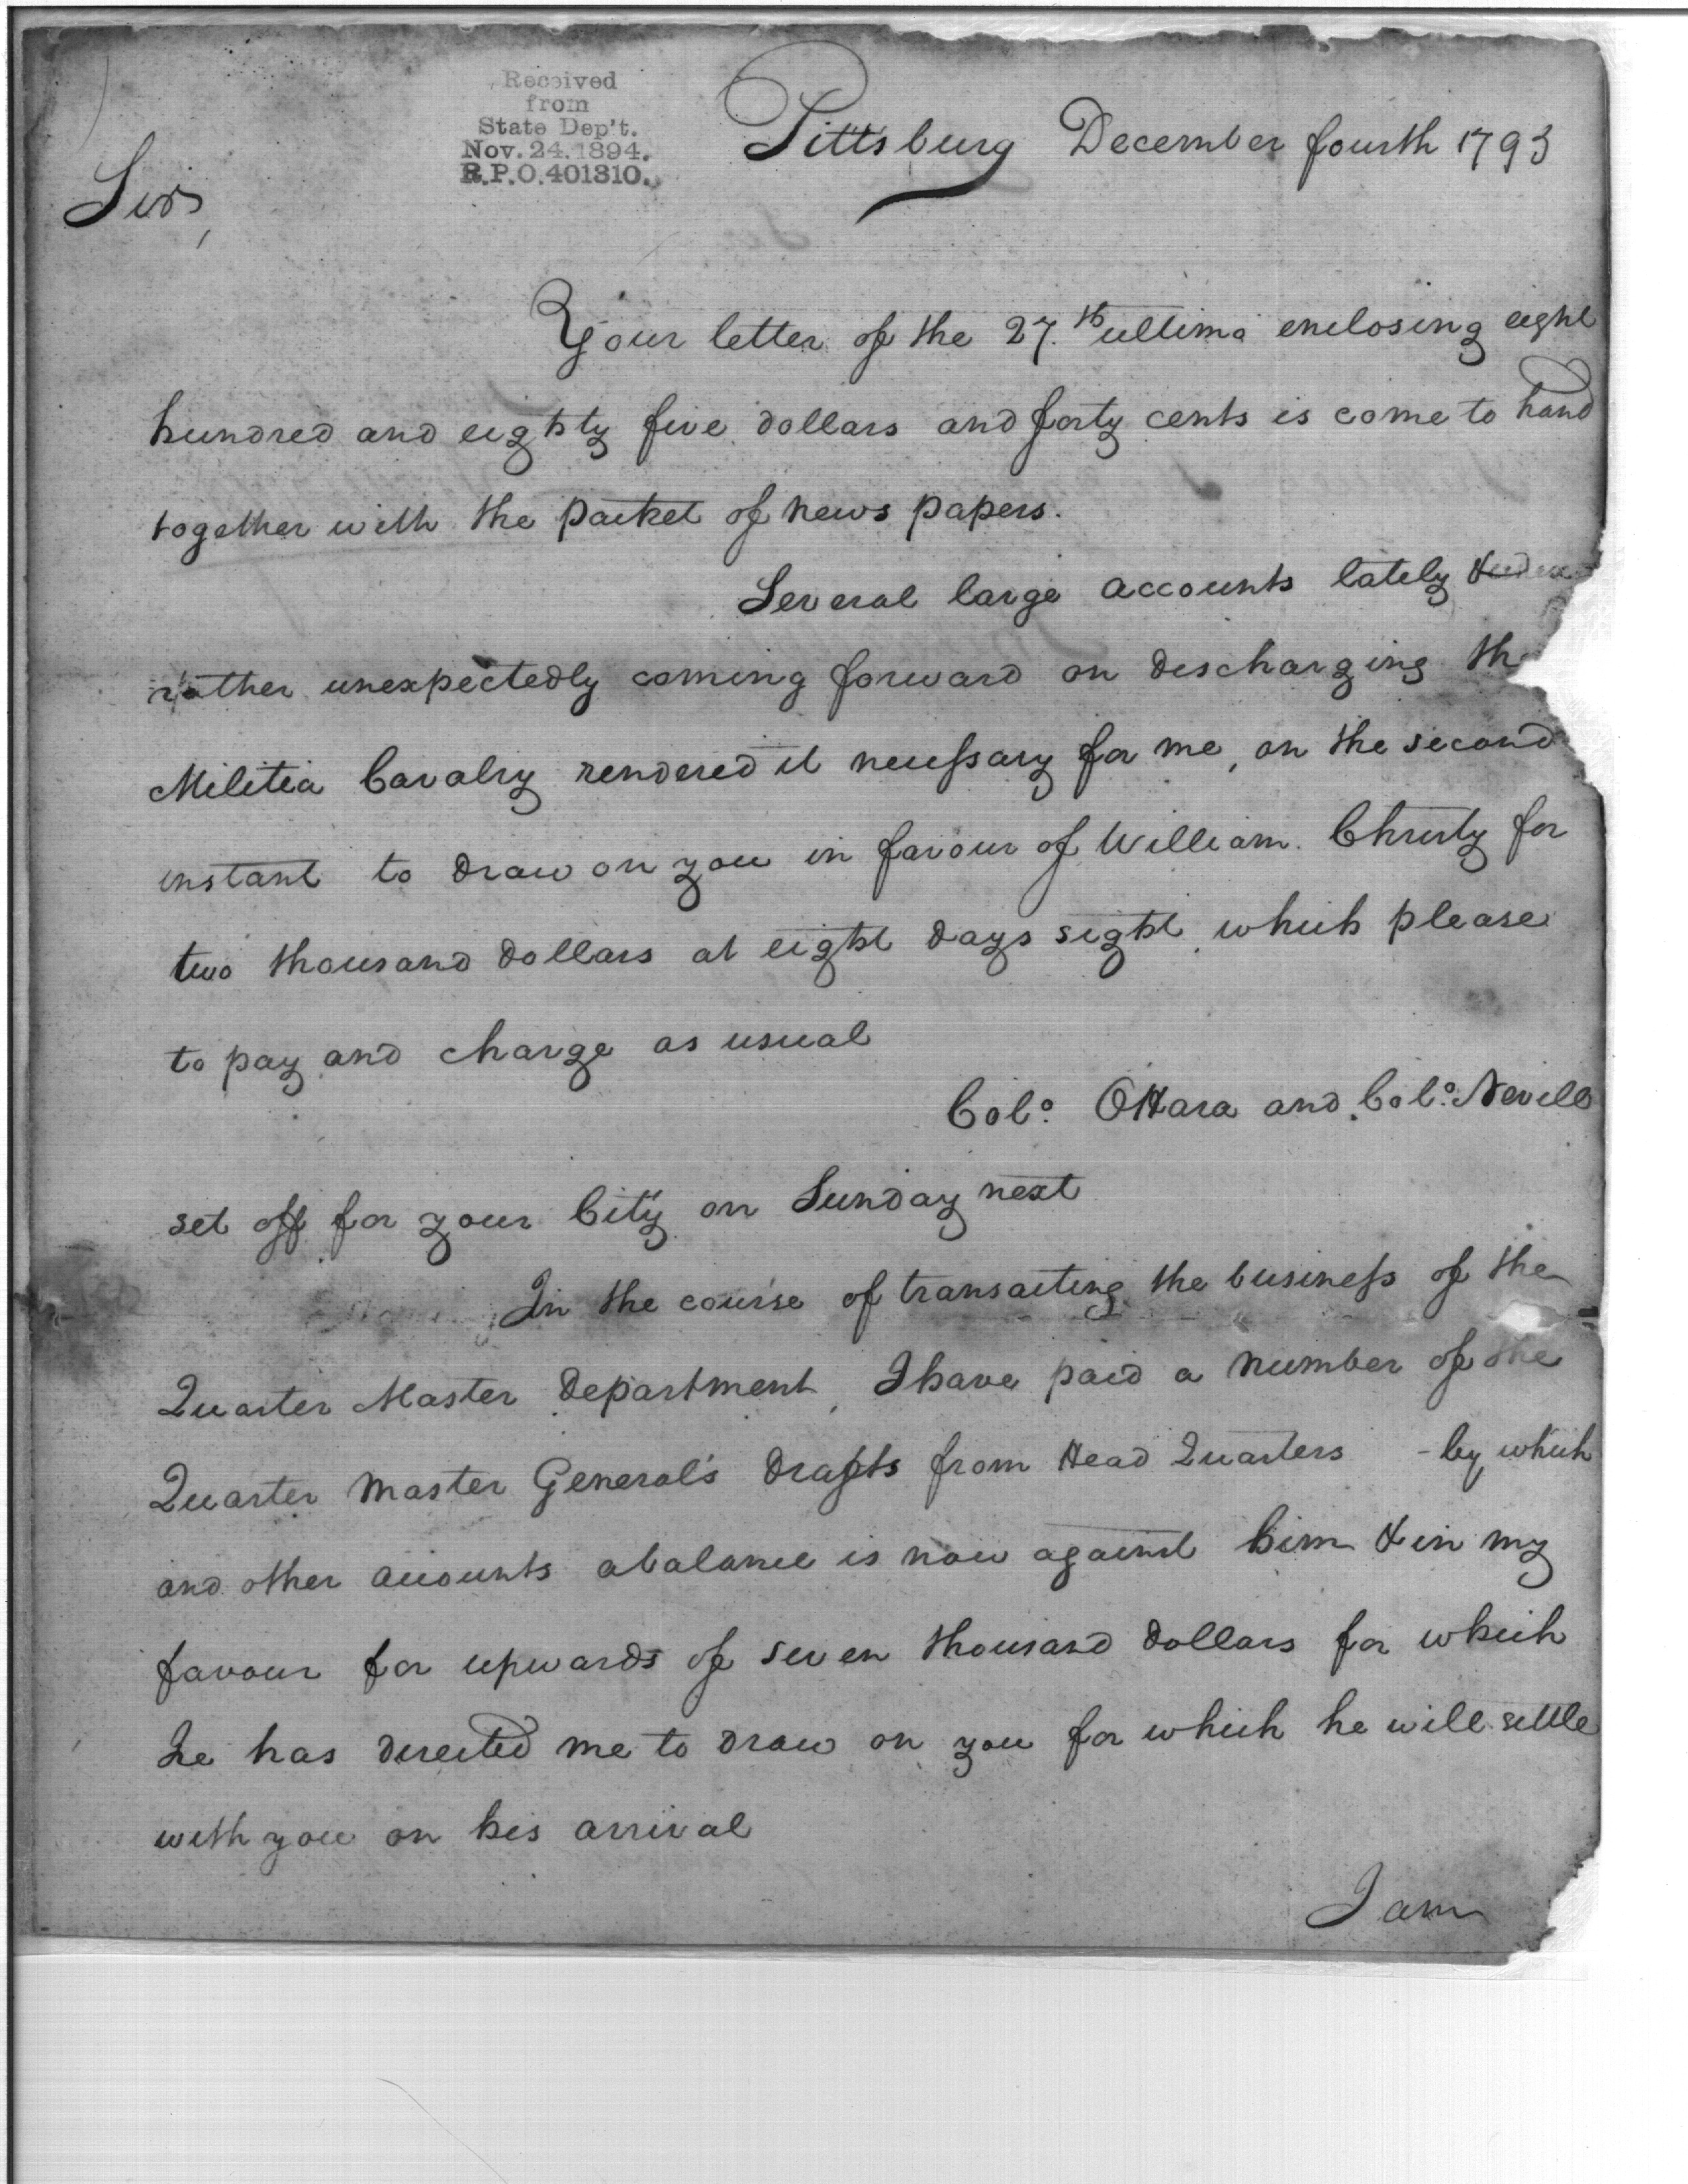 Received
from
State Dep't.
Nov. 24. 1894.
R.P.O. 401310.
Pittsburg December fourth 1793
Sir,
Your letter of the 27.th ultimo enclosing eight
hundred and eighty five dollars and forty cents is come to hand
together with the packet of news papers.
Several large accounts lately &
rather unexpectedly coming forward on discharging the
Militia Cavalry rendered it necessary for me, on the second
instant to draw on you in favour of William Christy for
two thousand dollars at eight days sight which please
to pay and charge as usual
Colo. OHara and Colo. Nevill
set off for your City on Sunday next
In the course of transacting the business of the
Quarter Master Department, I have paid a number of the
Quarter Master General's drafts from Head Quarters - by which
and other accounts a balance is now against him & in my
favour for upwards of seven thousand dollars for which
he has directed me to draw on you for which he will settle
with you on his arrival
I am